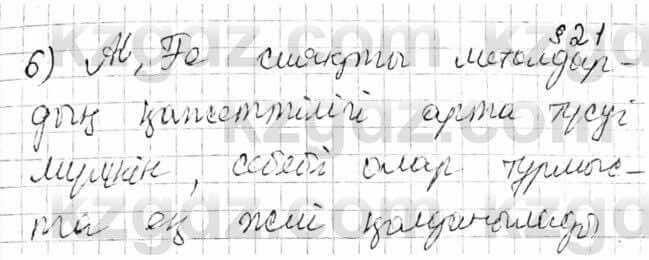 б) Al, Fe сияқты металдар-
дың қажеттілігі арта түсуі
мүмкін, себебі олар тұрмыс-
та ең жиі қолданылады